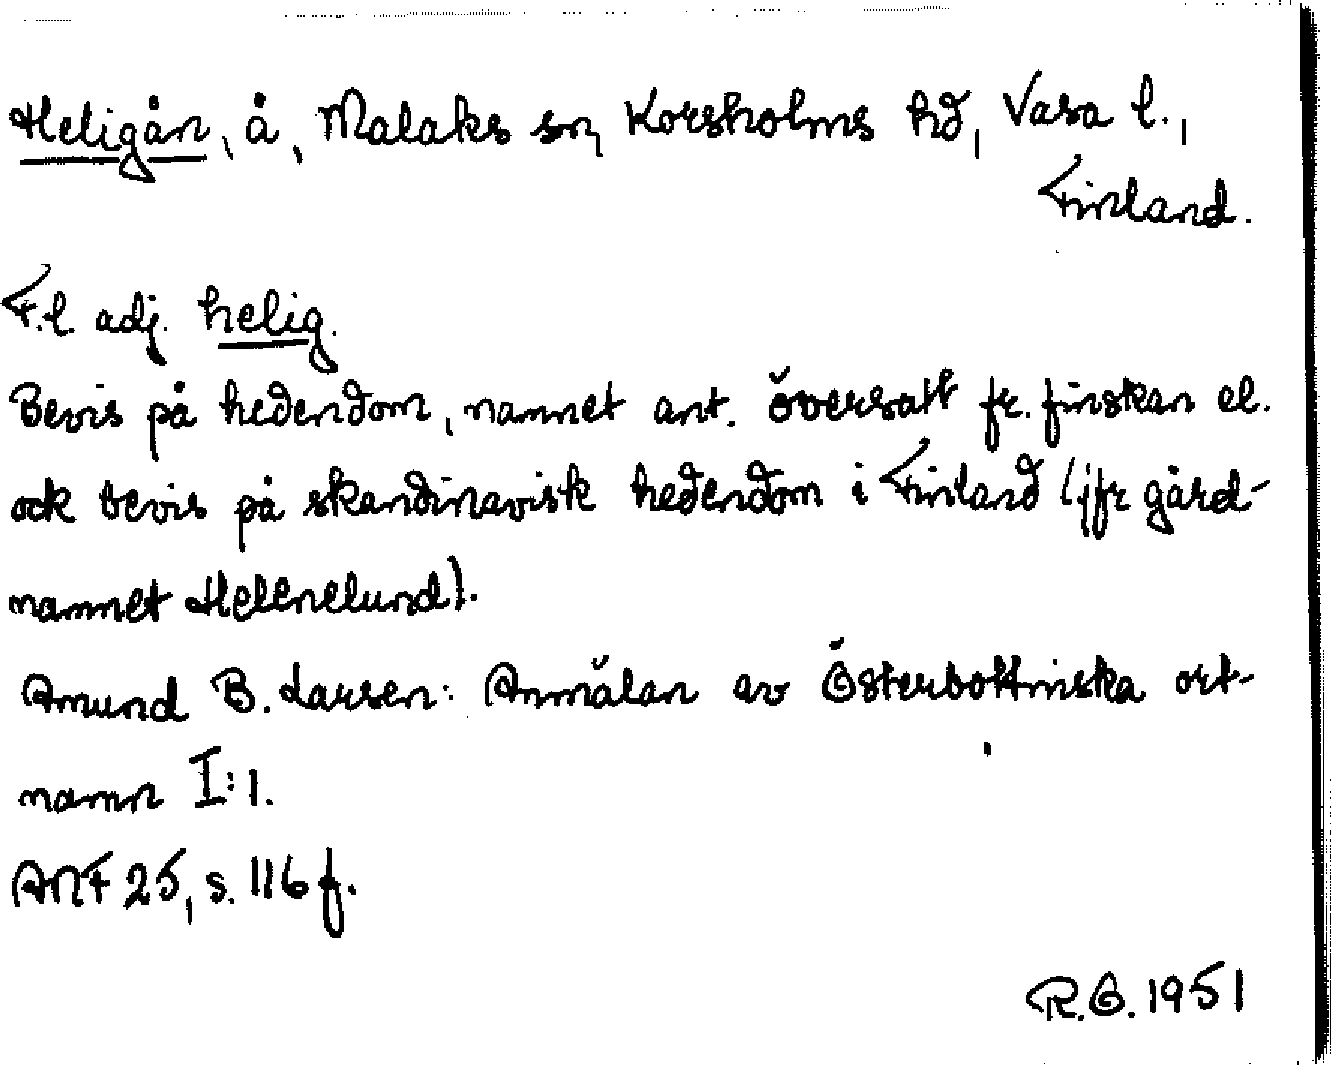 Heligån, å, Malaks sn, Korsholms hd, Vasa l.,
Finland.
F.l. adj. helig.
Bevis på hedendom, namnet ant. översatt fr. finskan el.
ock bevis på skandinavisk hedendom i Finland (jfr gård-
namnet Helenelund).
Amund B. Larsen: Anmälan av Österbottniska ort-
namn I:1.
ANF 25, s. 116 f.
R.O. 1951